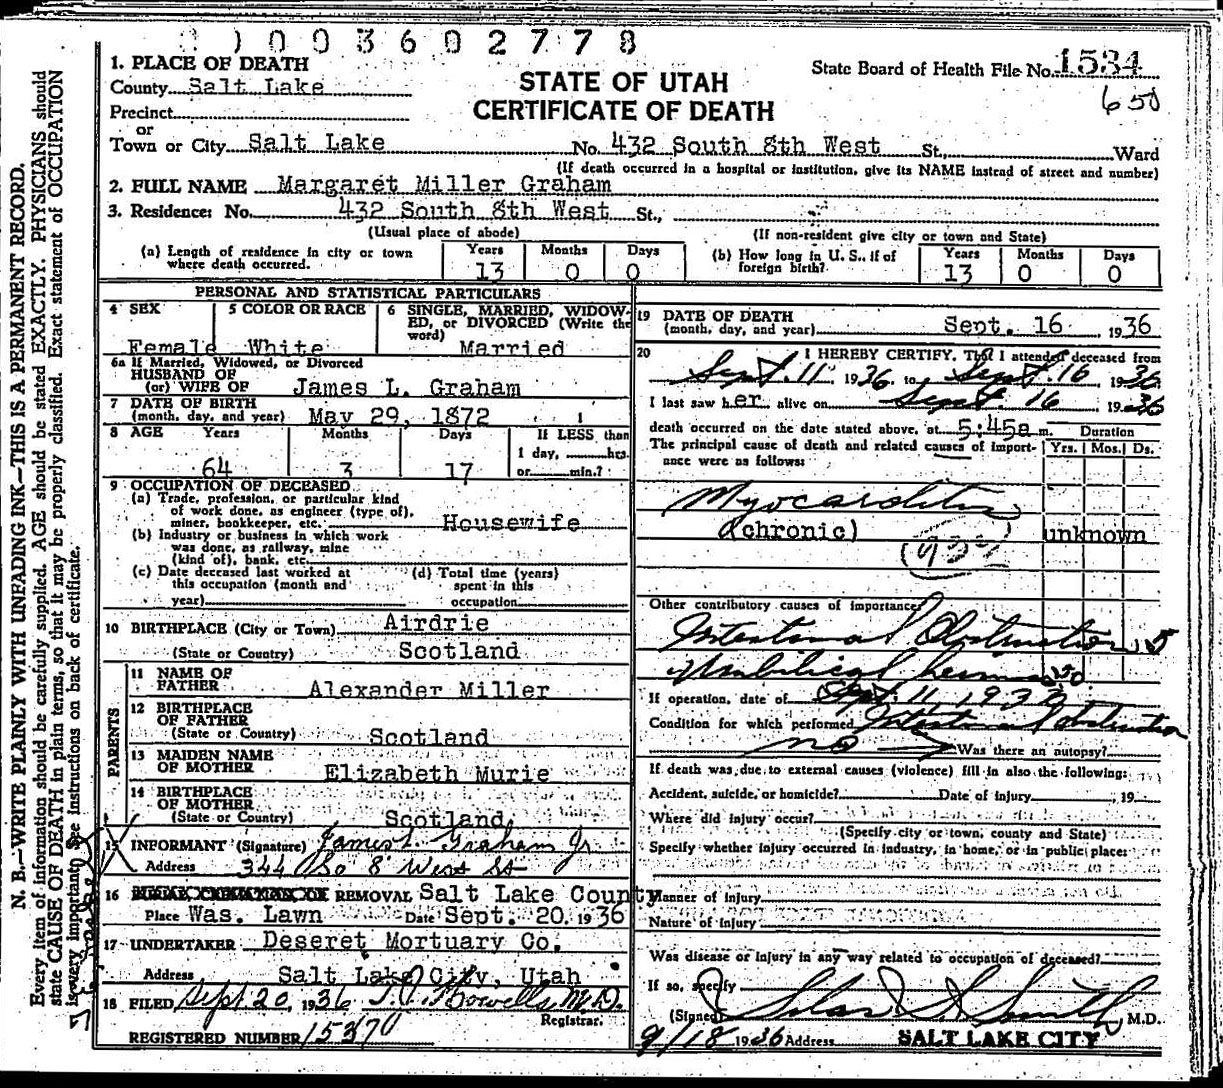 003602778
1. PLACE OF DEATH
STATE OF UTAH
CERTIFICATE OF DEATH
State Board of Health File No. 1534
650
County Salt Lake
Precinct
or
Town or City Salt Lake No. 432 South 8th West St., Ward
(If death occurred in a hospital or institution, give its NAME instead of street and number)
2. FULL NAME Margaret Miller Graham
3. Residence: No. 432 South 8th West St.,
(Usual place of abode) (If non-resident give city or town and State)
(a) Length of residence in city or town where death occurred. Years 13 Months 0 Days 0
(b) How long in U. S., if of foreign birth? Years 13 Months 0 Days 0
PERSONAL AND STATISTICAL PARTICULARS
4 SEX Female
5 COLOR OR RACE White
6 SINGLE, MARRIED, WIDOWED, or DIVORCED (Write the word) Married
6a If Married, Widowed, or Divorced
HUSBAND OF
(or) WIFE OF James L. Graham
7 DATE OF BIRTH
(month, day, and year) May 29, 1872
8 AGE Years 64 Months 3 Days 17 If LESS than 1 day, hrs. or min.?
9 OCCUPATION OF DECEASED
(a) Trade, profession, or particular kind
of work done, as engineer (type of),
miner, bookkeeper, etc. Housewife
(b) Industry or business in which work
was done, as railway, mine
(kind of), bank, etc.
(c) Date deceased last worked at
this occupation (month and
year)
(d) Total time (years)
spent in this
occupation
10 BIRTHPLACE (City or Town) Airdrie
(State or Country) Scotland
PARENTS
11 NAME OF
FATHER Alexander Miller
12 BIRTHPLACE
OF FATHER
(State or Country) Scotland
13 MAIDEN NAME
OF MOTHER Elizabeth Murie
14 BIRTHPLACE
OF MOTHER
(State or Country) Scotland
15 INFORMANT (Signature) James L Graham Jr
Address 344 So 8 West St
16 REMOVAL Salt Lake County
Place Was. Lawn Date Sept. 20, 1936
17 UNDERTAKER Deseret Mortuary Co.
Address Salt Lake City, Utah
18 FILED Sept 20, 1936 M.D.
Registrar.
REGISTERED NUMBER 15370
19 DATE OF DEATH
(month, day, and year) Sept. 16 1936
20 I HEREBY CERTIFY, That I attended deceased from
Sept. 11 1936 to Sept. 16 1936
I last saw her alive on Sept. 16 1936
death occurred on the date stated above, at 5:45a m. Duration
The principal cause of death and related causes of importance were as follows: Yrs. Mos. Ds.
Myocarditis
(chronic) unknown
Other contributory causes of importance:
Intestinal Obstruction 5
Umbilical hernia
If operation, date of Sept. 11, 193
Condition for which performed Intestinal obstruction
no Was there an autopsy?
If death was due to external causes (violence) fill in also the following:
Accident, suicide, or homicide? Date of injury , 19
Where did injury occur?
(Specify city or town, county and State)
Specify whether injury occurred in industry, in home, or in public place:
Manner of injury
Nature of injury
Was disease or injury in any way related to occupation of deceased?
If so, specify
(Signed) Silas S. Smith M.D.
9/18 1936 Address SALT LAKE CITY
N. B.—WRITE PLAINLY WITH UNFADING INK—THIS IS A PERMANENT RECORD.
Every item of information should be carefully supplied. AGE should be stated EXACTLY. PHYSICIANS should
state CAUSE OF DEATH in plain terms, so that it may be properly classified. Exact statement of OCCUPATION
is very important. See instructions on back of certificate.